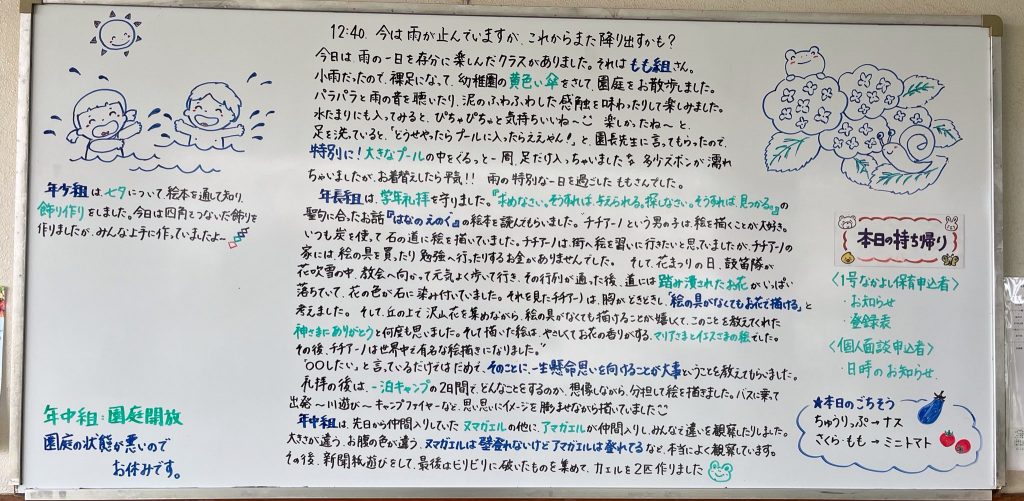 12:40. 今は雨が止んでいますが、これからまた降り出すかも？
今日は雨の一日を存分に楽しんだクラスがありました。それはもも組さん。
小雨だったので、裸足になって、幼稚園の黄色い傘をさして園庭をお散歩しました。
パラパラと雨の音を聴いたり、泥のふわふわした感触を味わったりして楽しみました。
水たまりにも入ってみると、ぴちゃぴちゃと気持ちいいね〜 楽しかったね〜と、
足を洗っていると、「どうせやったらプールに入ったらええやん!」と園長先生に言ってもらったので、
特別に！大きなプールの中をぐるっと一周、足だけ入っちゃいました 多少ズボンが濡れ
ちゃいましたが、お着替えしたら平気！！ 雨の特別な一日を過ごしたももさんでした。
年長組は、学年礼拝を守りました。『求めなさい。そうすれば、与えられる。探しなさい。そうすれば、見つかる。』の
聖句に合ったお話『はなのえのぐ』の絵本を読んでもらいました。"チチアーノという男の子は、絵を描くことが大好き。
いつも炭を使って石の道に絵を描いていました。チチアーノは、街へ絵を習いに行きたいと思っていましたが、チチアーノの
家には、絵の具を買ったり勉強へ行ったりするお金がありませんでした。 そして、花まつりの日、鼓笛隊が
花吹雪の中、教会へ向かって元気よく歩いて行き、その行列が通った後、道には踏み潰されたお花がいっぱい
落ちていて、花の色が石に染み付いていました。それを見たチチアーノは、胸がどきどきし、「絵の具がなくてもお花で描ける」と
考えました。 そして、丘の上で沢山花を集めながら、絵の具がなくても描けることが嬉しくて、このことを教えてくれた
神さまにありがとうと何度も思いました。そして描いた絵は、やさしくてお花の香りがする、マリアさまとイエスさまの絵でした。
その後、チチアーノは世界中で有名な絵描きになりました。"
「〇〇したい」と言っているだけではだめで、そのことに、一生懸命思いを向けることが大事ということを教えてもらいました。
礼拝の後は、一泊キャンプの2日間で、どんなことをするのか、想像しながら、分担して絵を描きました。バスに乗って
出発〜川遊び〜キャンプファイヤーなど、思い思いにイメージを膨らませながら描いていました
年中組は、先日から仲間入りしていたヌマガエルの他に、アマガエルが仲間入りし、みんなで違いを観察したりしました。
大きさが違う、お腹の色が違う、ヌマガエルは壁登れないけどアマガエルは登れてるなど、本当によく観察しています。
その後、新聞紙遊びをして、最後はビリビリに破いたものを集めて、カエルを2匹作りました
年少組は、七夕について、絵本を通して知り、
飾り作りをしました。今日は四角くつないだ飾りを
作りましたが、みんな上手に作っていましたよー
年中組：園庭開放
園庭の状態が悪いので
お休みです。
本日の持ち帰り
〈1号なかよし保育申込者〉
・お知らせ
・登録表
〈個人面談申込者〉
・日時のお知らせ
★本日のごちそう
ちゅうりっぷ→ナス
さくら・もも→ミニトマト